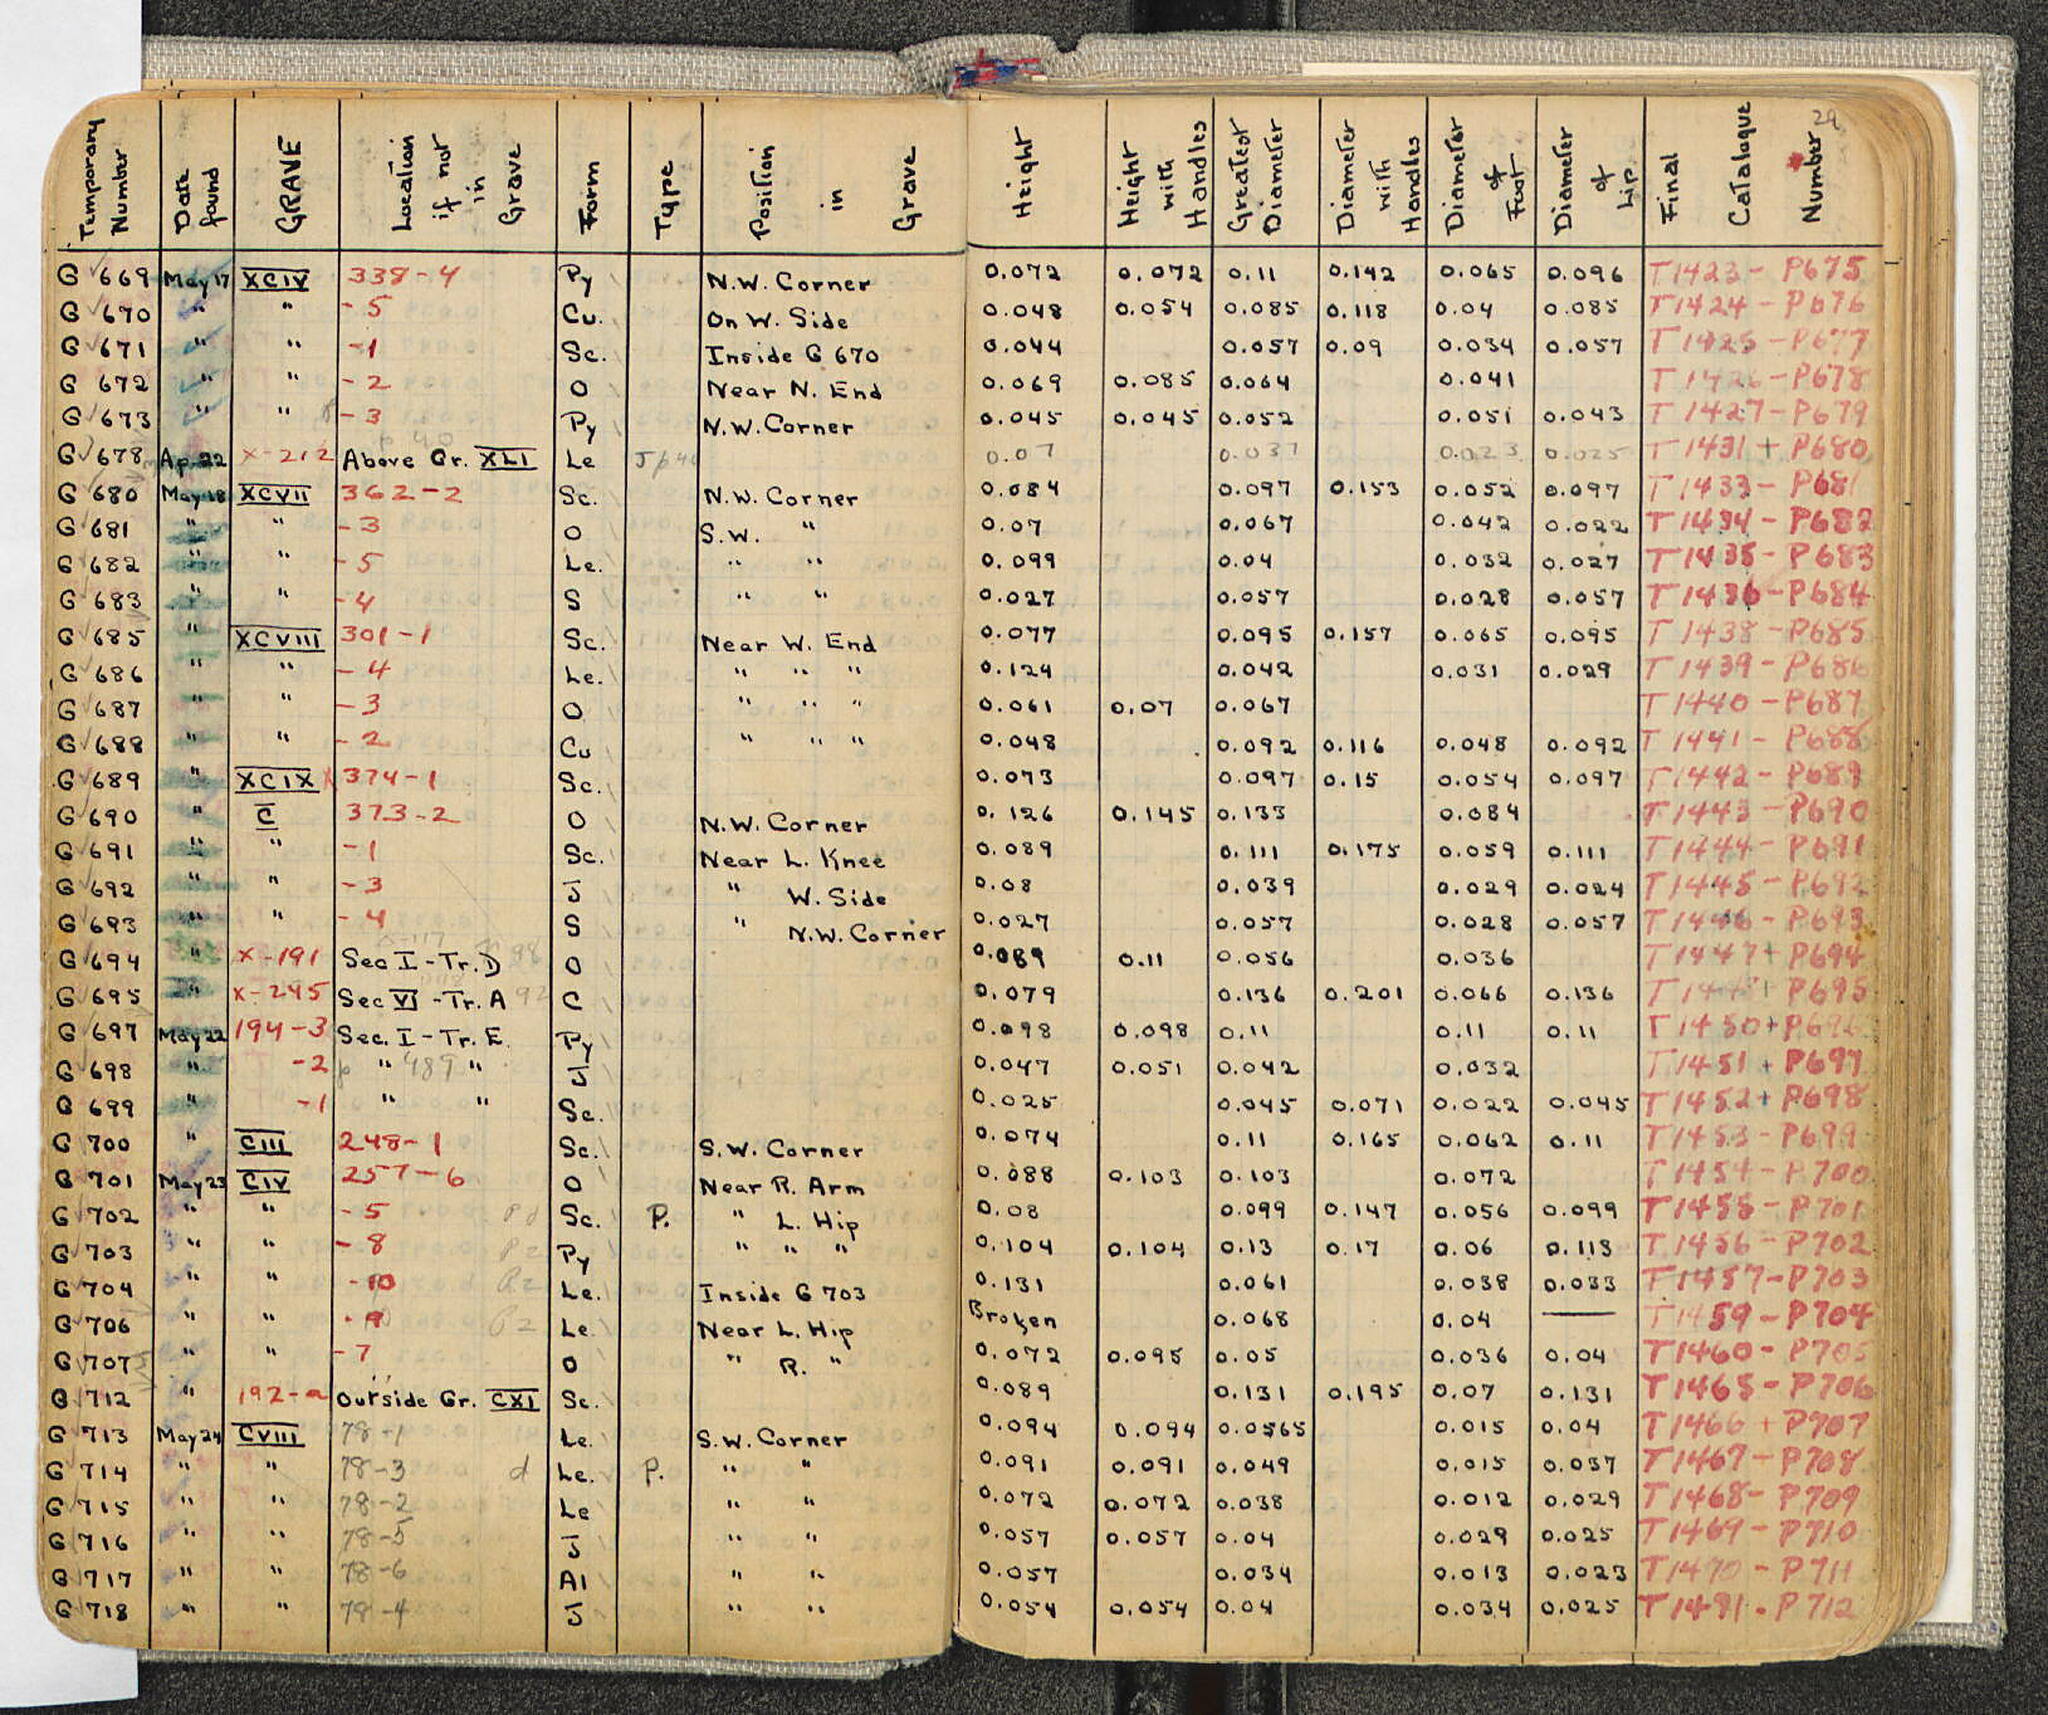 Temporary Number | Date found | GRAVE | Location if not in Grave | Form | Type | Position in Grave | Height | Height with Handles | Greatest Diameter | Diameter with Handles | Diameter of Foot | Diameter of Lip | Final Catalogue Number 29
G 669 May 17 XCIV 338-4 Py N.W. Corner 0.072 0.072 0.11 0.142 0.065 0.096 T1423- P675
G 670 " " -5 Cu. On W. Side 0.048 0.054 0.085 0.118 0.04 0.085 T1424 - P676
G 671 " " -1 Sc. Inside G 670 0.044 0.057 0.09 0.034 0.057 T1425 - P677
G 672 " " -2 O Near N. End 0.069 0.085 0.064 0.041 T1426 - P678
G 673 " " -3 Py N.W. Corner 0.045 0.045 0.052 0.051 0.043 T1427 - P679
p 40
G 678 Ap. 22 X-212 Above Gr. XLI Le 0.07 0.037 0.023 0.025 T1431 + P680
G 680 May 18 XCVII 362-2 Sc. N.W. Corner 0.084 0.097 0.153 0.052 0.097 T1433 - P681
G 681 " " -3 O S.W. " 0.07 0.067 0.042 0.022 T1434 - P682
G 682 " " -5 Le. " " 0.099 0.04 0.032 0.027 T1435 - P683
G 683 " " -4 S " " 0.027 0.057 0.028 0.057 T1436 - P684
G 685 " XCVIII 301-1 Sc. Near W. End 0.077 0.095 0.157 0.065 0.095 T1438 - P685
G 686 " " -4 Le. " " " 0.124 0.042 0.031 0.029 T1439 - P686
G 687 " " -3 O " " " 0.061 0.07 0.067 T1440 - P687
G 688 " " -2 Cu " " " 0.048 0.092 0.116 0.048 0.092 T1441 - P688
G 689 " XCIX 374-1 Sc. 0.073 0.097 0.15 0.054 0.097 T1442 - P689
G 690 " C 373-2 O N.W. Corner 0.126 0.145 0.133 0.084 T1443 - P690
G 691 " " -1 Sc. Near L. Knee 0.089 0.111 0.175 0.059 0.111 T1444 - P691
G 692 " " -3 J " W. Side 0.08 0.039 0.029 0.024 T1445 - P692
G 693 " " -4 S " N.W. Corner 0.027 0.057 0.028 0.057 T1446 - P693
G 694 " X-191 Sec I - Tr. D O 0.089 0.11 0.056 0.036 T1447 + P694
G 695 " X-245 Sec VI - Tr. A 92 C 0.079 0.136 0.201 0.066 0.136 + P695
G 697 May 22 194-3 Sec. I - Tr. E. Py 0.098 0.098 0.11 0.11 0.11 T1450 + P696
G 698 " -2 p " 489 " J 0.047 0.051 0.042 0.032 T1451 + P697
G 699 " -1 " " Sc. 0.025 0.045 0.071 0.022 0.045 T1452 + P698
G 700 " CIII 248-1 Sc. S.W. Corner 0.074 0.11 0.165 0.062 0.11 T1453 - P699
G 701 May 23 CIV 257-6 O Near R. Arm 0.088 0.103 0.103 0.072 T1454 - P700
G 702 " " -5 Sc. P. " L. Hip 0.08 0.099 0.147 0.056 0.099 T1455 - P701
G 703 " " -8 P2 Py " " " 0.104 0.104 0.13 0.17 0.06 0.113 T1456 - P702
G 704 " " -10 P2 Le. Inside G 703 0.131 0.061 0.038 0.033 T1457 - P703
G 706 " " -9 P2 Le. Near L. Hip Broken 0.068 0.04 — T1459 - P704
G 707 " " -7 O " R. " 0.072 0.095 0.05 0.036 0.04 T1460 - P705
G 712 " 192-a Outside Gr. CXI Sc. 0.089 0.131 0.195 0.07 0.131 T1465 - P706
G 713 May 24 CVIII 78-1 Le. S.W. Corner 0.094 0.094 0.0565 0.015 0.04 T1466 + P707
G 714 " " 78-3 d Le. P. " " 0.091 0.091 0.049 0.015 0.037 T1467 - P708
G 715 " " 78-2 Le " " 0.072 0.072 0.038 0.012 0.029 T1468 - P709
G 716 " " 78-5 J " " 0.057 0.057 0.04 0.029 0.025 T1469 - P710
G 717 " " 78-6 Al " " 0.057 0.034 0.013 0.023 T1470 - P711
G 718 " " 78-4 J " " 0.054 0.054 0.04 0.034 0.025 T1481 - P712